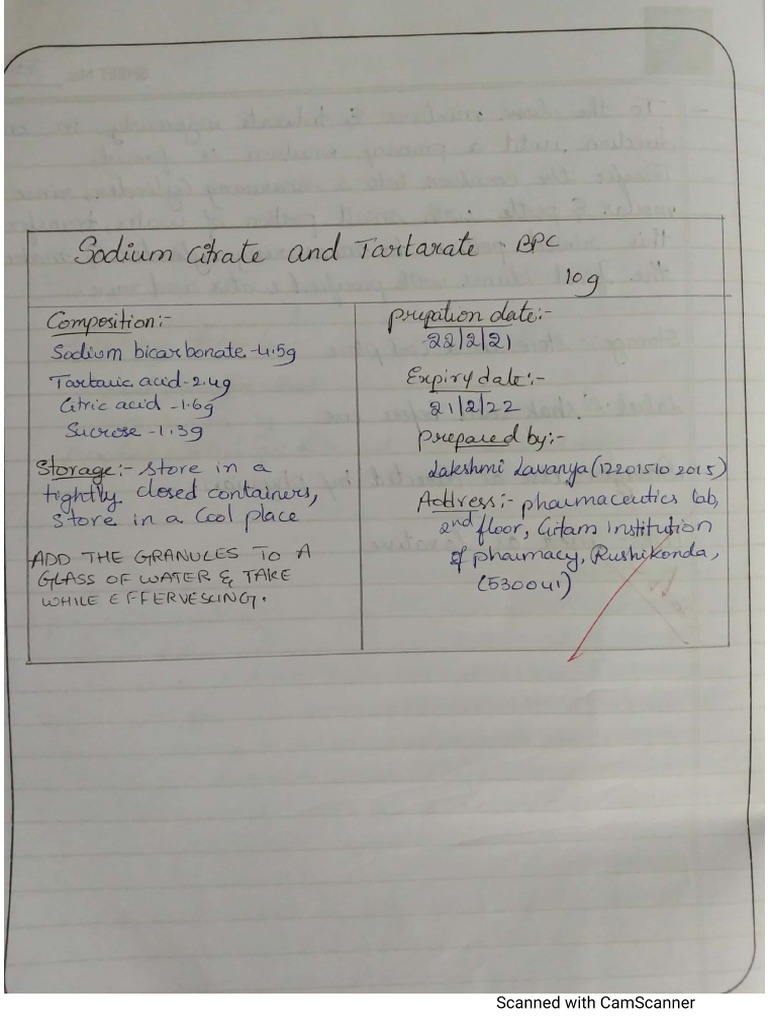 Sodium Citrate and Tartarate BPC
10g
Composition:-
Sodium bicarbonate-4.5g
Tartaric acid-2.4g
Citric acid -1.6g
Sucrose -1.3g
Storage:- store in a
tightly closed containers,
store in a Cool place
ADD THE GRANULES TO A
GLASS OF WATER & TAKE
WHILE EFFERVESCING.
prepation date:-
22/2/21
Expiry date:-
21/2/22
prepared by:-
Lakshmi Lavanya (122015102015)
Address:- pharmaceutics lab,
2nd floor, Gitam institution
of pharmacy, Rushikonda,
(530041)
Scanned with CamScanner